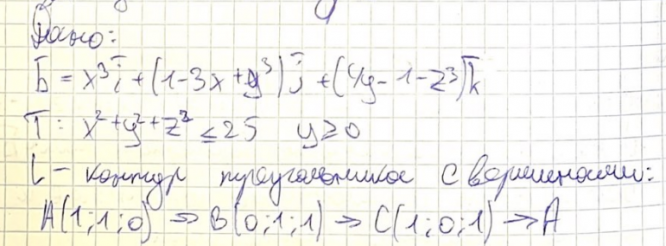 Дано:
b̄ = x³ī + (1-3x+y³)j̄ + (4y-1-z³)k̄
T: x²+y²+z² ≤ 25 y ≥ 0
L - контур треугольника с вершинами:
A(1;1;0) ⇒ B(0;1;1) → C(1;0;1) → A